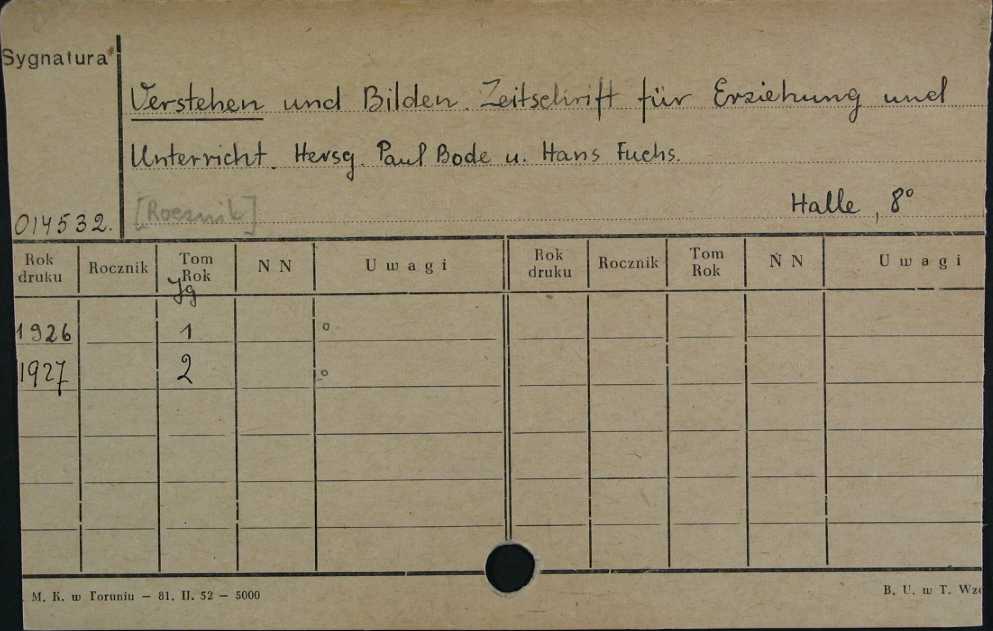 Sygnatura
Verstehen und Bilden. Zeitschrift für Erziehung und
Unterricht. Hersg. Paul Bode u. Hans Fuchs.
[Rocznik]
Halle, 8°
014532.
Rok druku Rocznik Tom Rok N N Uwagi Rok druku Rocznik Tom Rok N N Uwagi
Jg
1926 1 o
1927 2 o
M. K. w Toruniu — 81. II. 52 — 5000
B. U. w T.